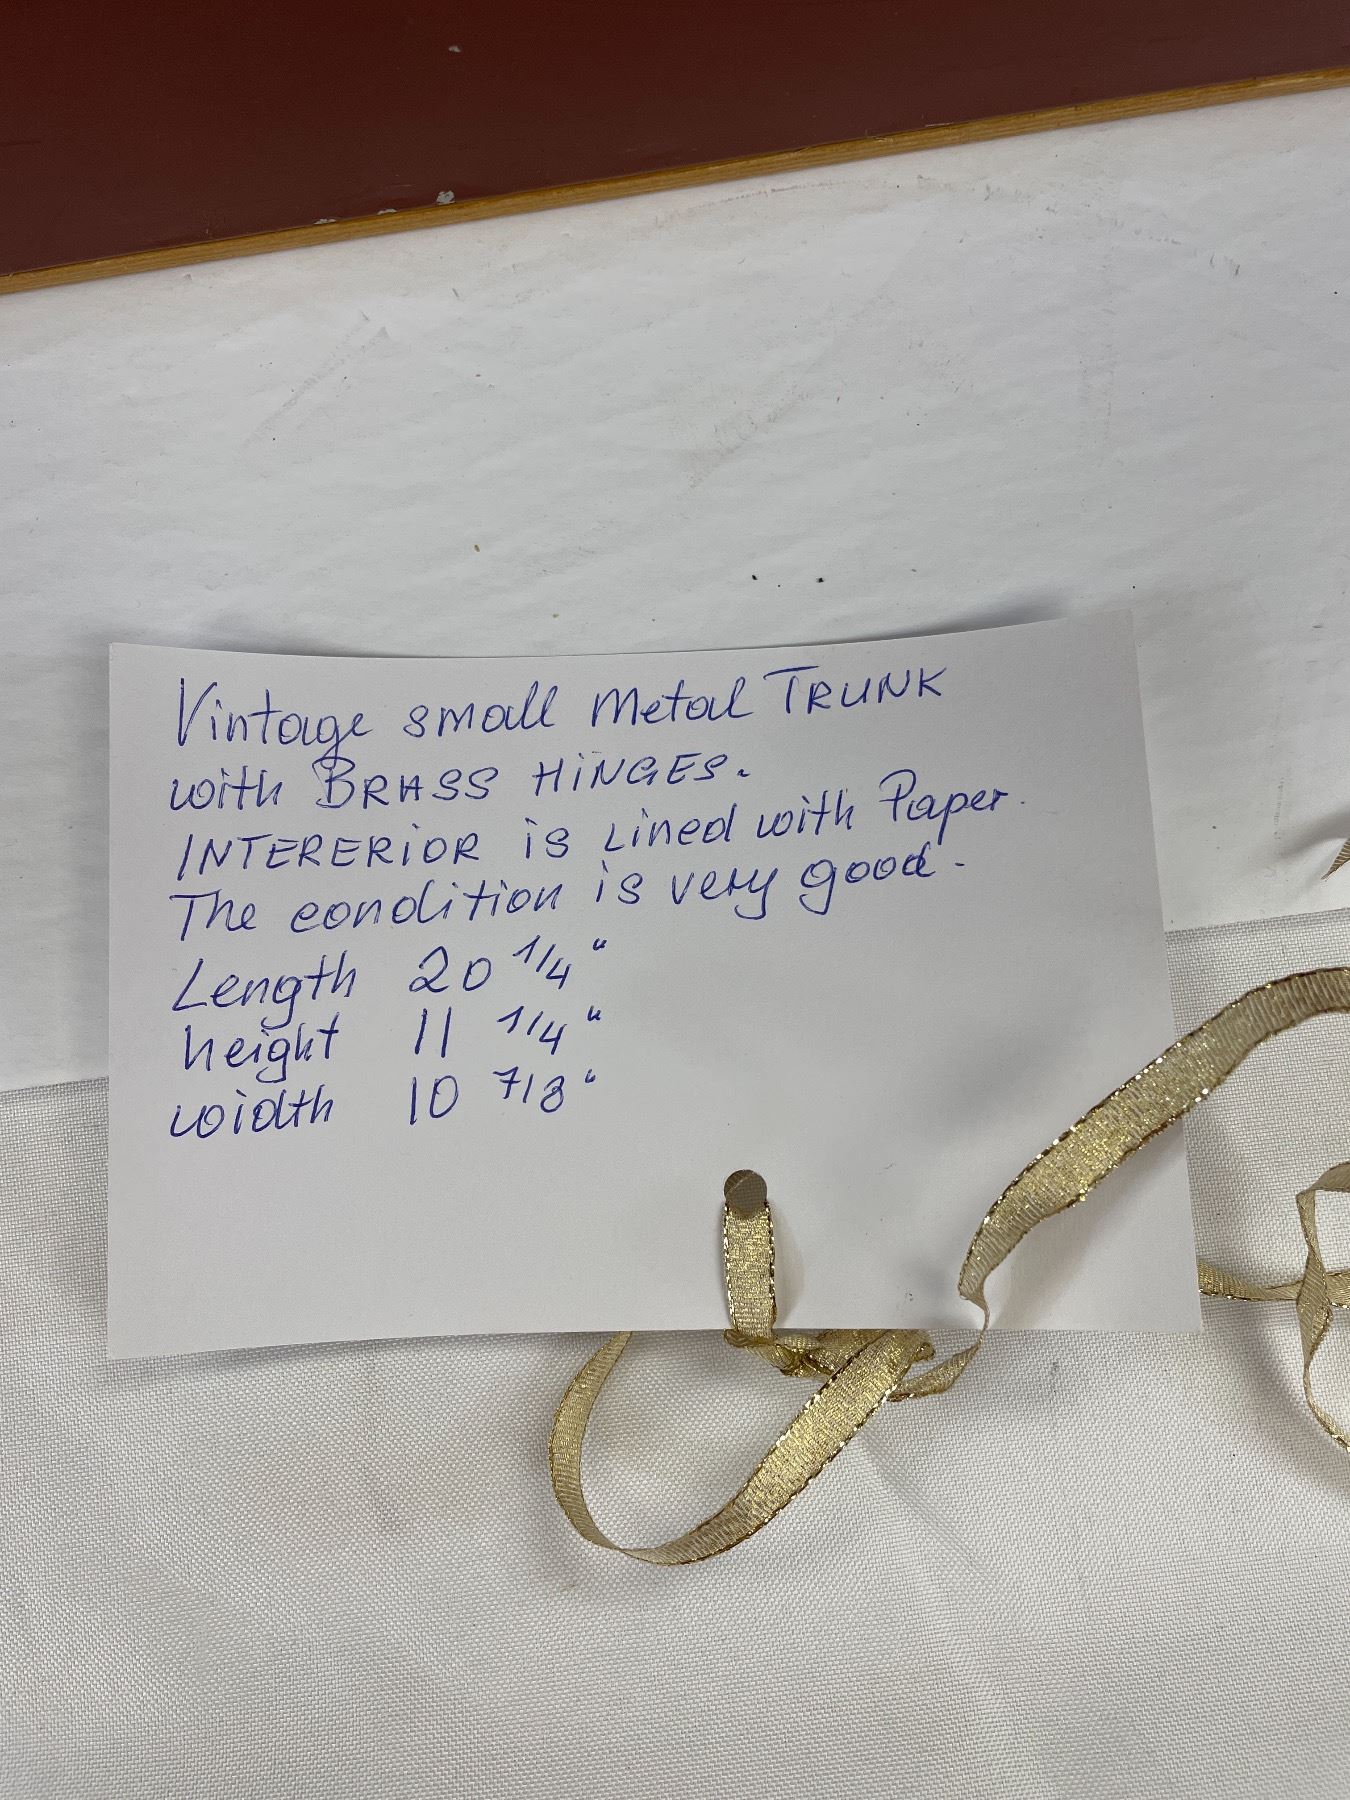 Vintage small Metal TRUNK
with BRASS HINGES.
INTERERIOR is Lined with Paper.
The condition is very good.
Length 20 1/4"
height 11 1/4"
width 10 7/8"